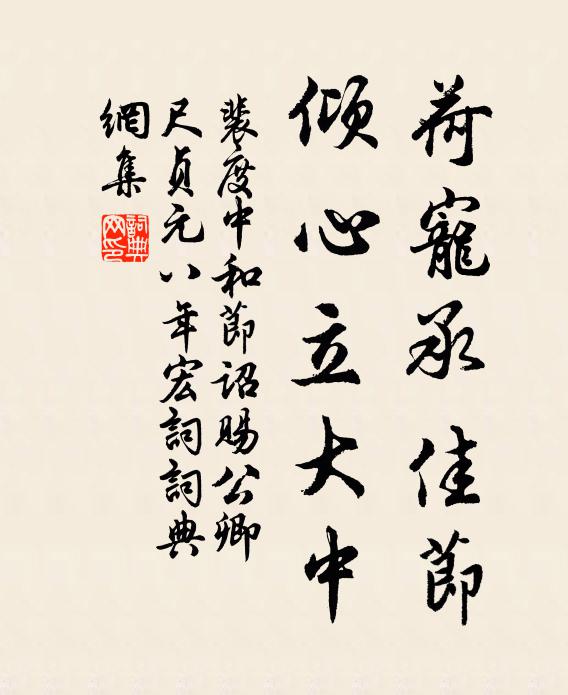 荷寵承佳節
傾心立大中
裴度中和節詔賜公卿
尺貞元八年宏詞詞典
網集
詞典網印